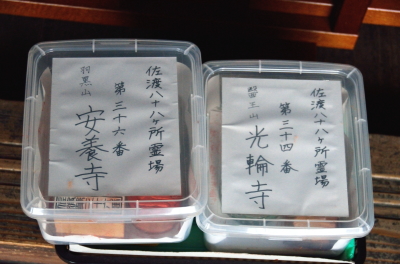 佐渡八十八ヶ所霊場
第三十六番
羽黒山
安養寺
佐渡八十八ヶ所霊場
第三十四番
医王山
光輪寺